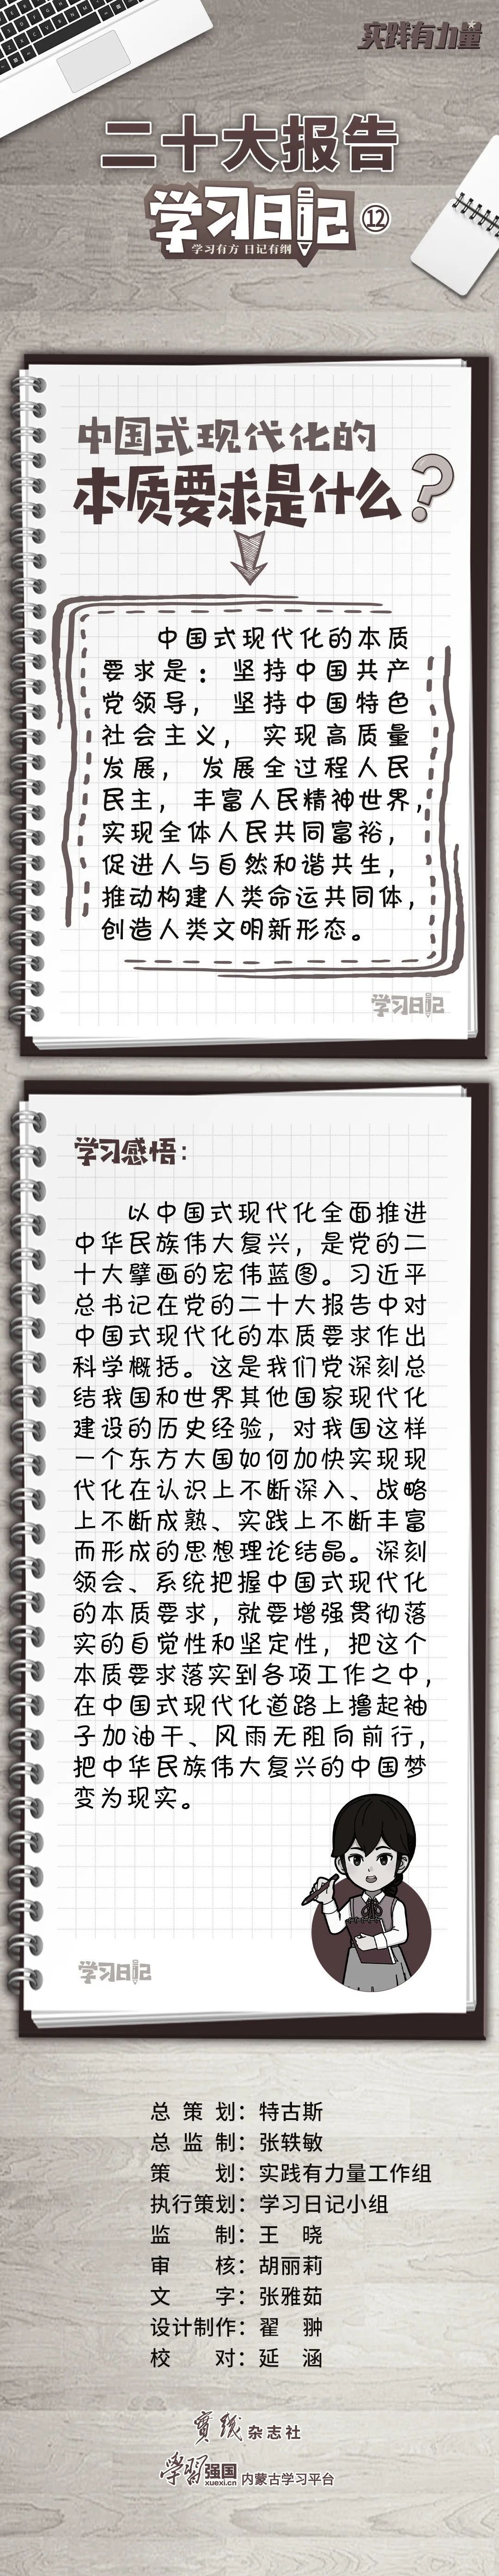 实践有力量
二十大报告
学习日记 ⑫
学习有方 日记有纲
中国式现代化的
本质要求是什么?
中国式现代化的本质
要求是：坚持中国共产
党领导，坚持中国特色
社会主义，实现高质量
发展，发展全过程人民
民主，丰富人民精神世界，
实现全体人民共同富裕，
促进人与自然和谐共生，
推动构建人类命运共同体，
创造人类文明新形态。
学习日记
学习感悟：
以中国式现代化全面推进
中华民族伟大复兴，是党的二
十大擘画的宏伟蓝图。习近平
总书记在党的二十大报告中对
中国式现代化的本质要求作出
科学概括。这是我们党深刻总
结我国和世界其他国家现代化
建设的历史经验，对我国这样
一个东方大国如何加快实现现
代化在认识上不断深入、战略
上不断成熟、实践上不断丰富
而形成的思想理论结晶。深刻
领会、系统把握中国式现代化
的本质要求，就要增强贯彻落
实的自觉性和坚定性，把这个
本质要求落实到各项工作之中，
在中国式现代化道路上撸起袖
子加油干、风雨无阻向前行，
把中华民族伟大复兴的中国梦
变为现实。
学习日记
总策划：特古斯
总监制：张轶敏
策划：实践有力量工作组
执行策划：学习日记小组
监制：王晓
审核：胡丽莉
文字：张雅茹
设计制作：翟翀
校对：延涵
實踐杂志社
學習强国 xuexi.cn 内蒙古学习平台